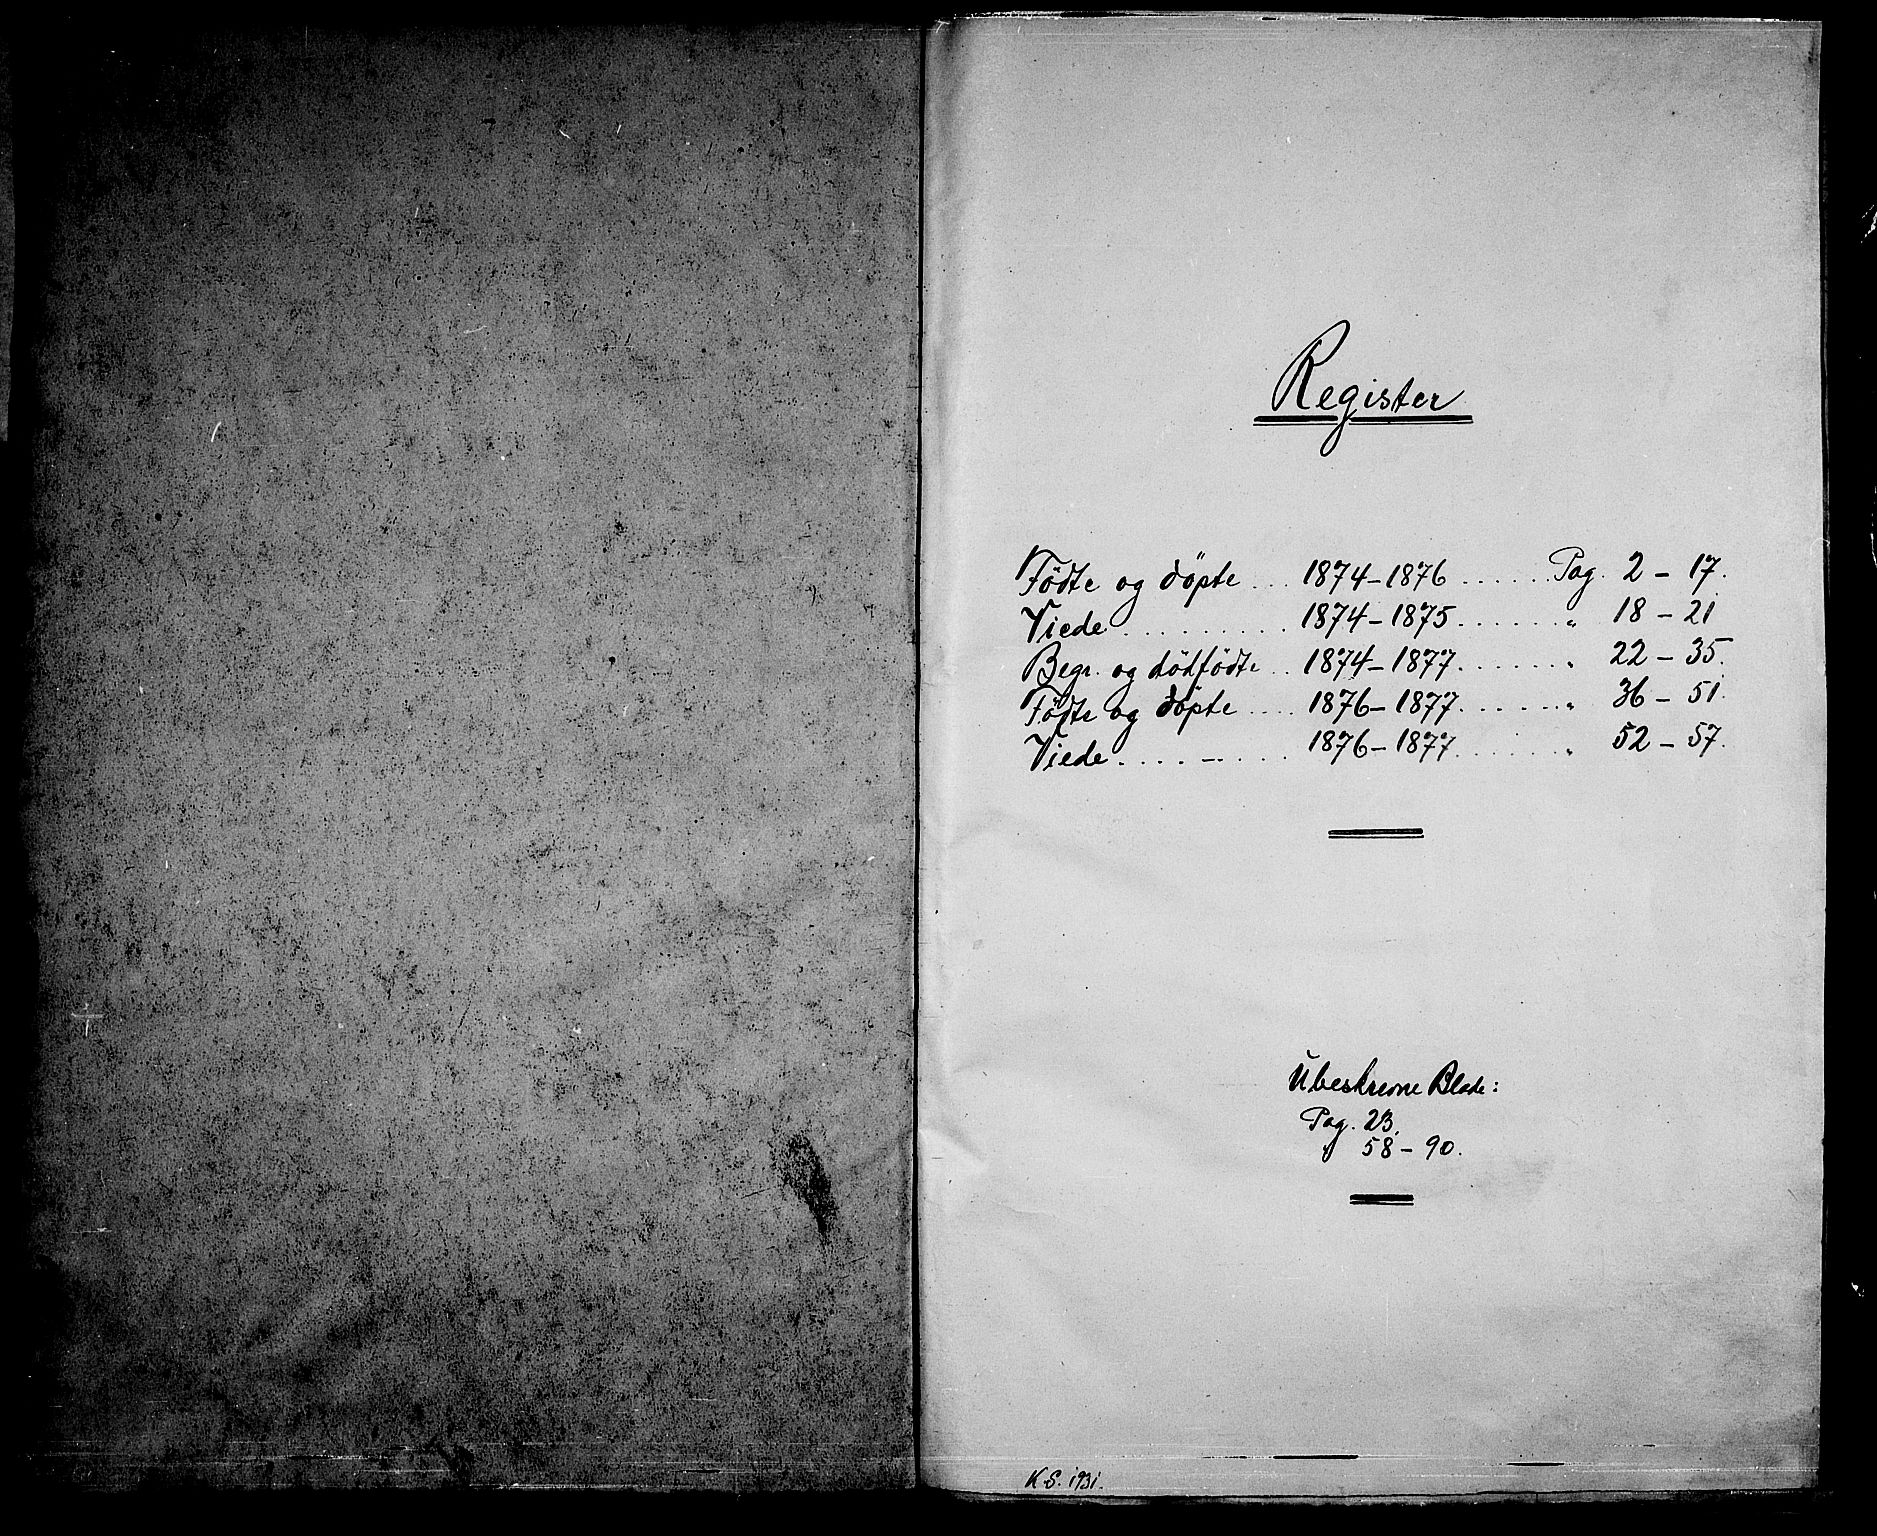 Register
Födte og döpte ... 1874-1876 ...... Pag. 2 - 17.
Viede .......... 1874-1875 ...... „ 18 - 21
Begr. og dödfödte .. 1874-1877 ....... „ 22 - 35.
Födte og döpte .... 1876-1877 ...... „ 36 - 51.
Viede .......... 1876-1877 ...... „ 52 - 57.
Ubeskrevne Blade:
Pag. 23.
„ 58 - 90.
K.S. 1931.